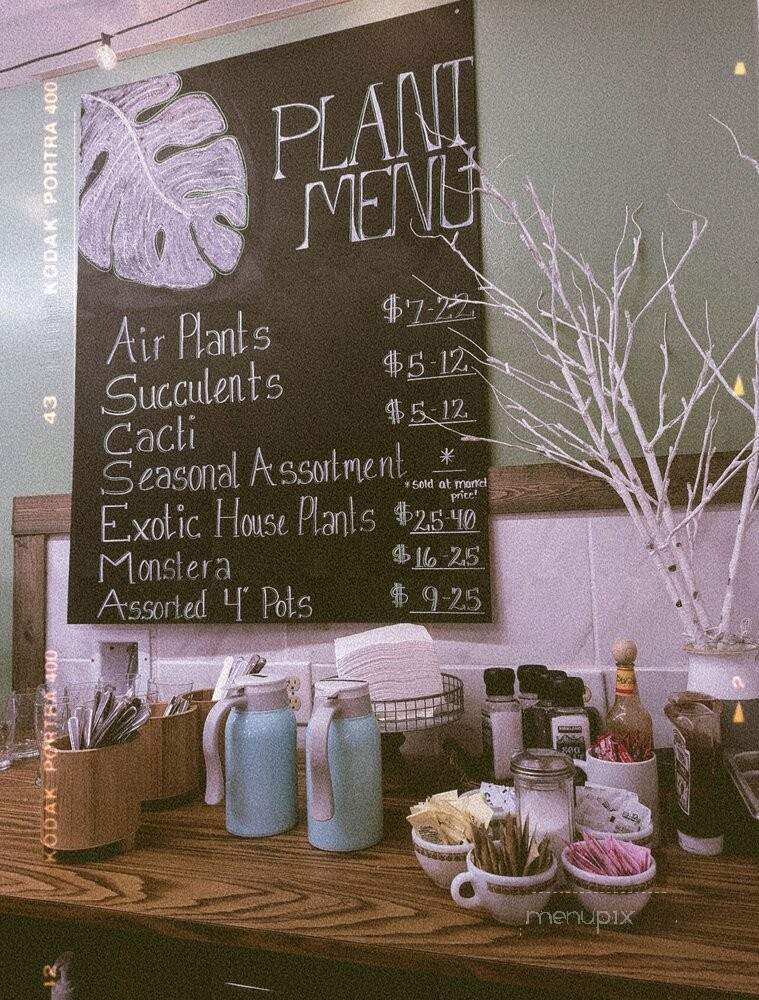 PLANT
MENU
Air Plants $7-22
Succulents $5-12
Cacti $5-12
Seasonal Assortment *
*sold at market
price!
Exotic House Plants $25-40
Monstera $16-25
Assorted 4" Pots $9-25
KODAK PORTRA 400
43
KODAK PORTRA 400
12
2
menupix